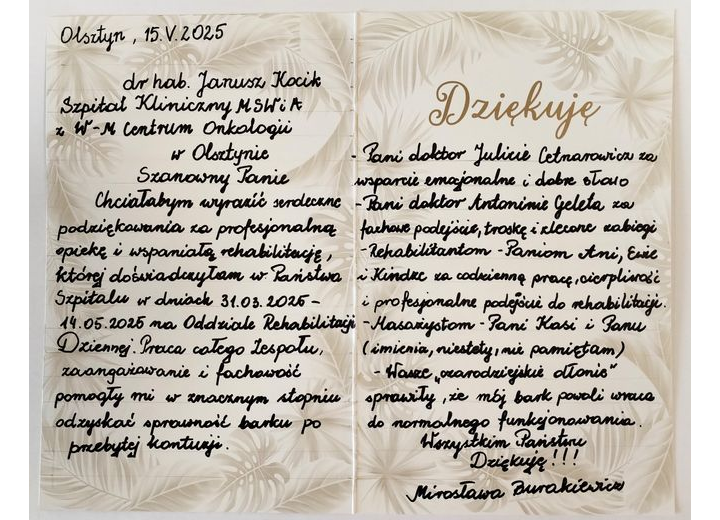 Olsztyn, 15.V.2025
dr hab. Janusz Kocik
Szpital Kliniczny MSWiA
z W-M Centrum Onkologii
w Olsztynie
Szanowny Panie
Chciałabym wyrazić serdeczne
podziękowania za profesjonalną
opiekę i wspaniałą rehabilitację,
której doświadczyłam w Państwa
Szpitalu w dniach 31.03.2025-
14.05.2025 na Oddziale Rehabilitacji
Dziennej. Praca całego Zespołu,
zaangażowanie i fachowość
pomogły mi w znacznym stopniu
odzyskać sprawność barku po
przebytej kontuzji.
Dziękuję
- Pani doktor Julicie Cetnarowicz za
wsparcie emocjonalne i dobre słowo
- Pani doktor Antoninie Geleta za
fachowe podejście, troskę i zlecone zabiegi
- Rehabilitantom - Paniom Ani, Ewie
i Kindze za codzienną pracę, cierpliwość
i profesjonalne podejście do rehabilitacji.
- Masażystom - Pani Kasi i Panu
(imienia, niestety, nie pamiętam)
- Wasze „czarodziejskie dłonie"
sprawiły, że mój bark powoli wraca
do normalnego funkcjonowania.
Wszystkim Państwu
Dziękuję!!!
Mirosława Burakiewicz